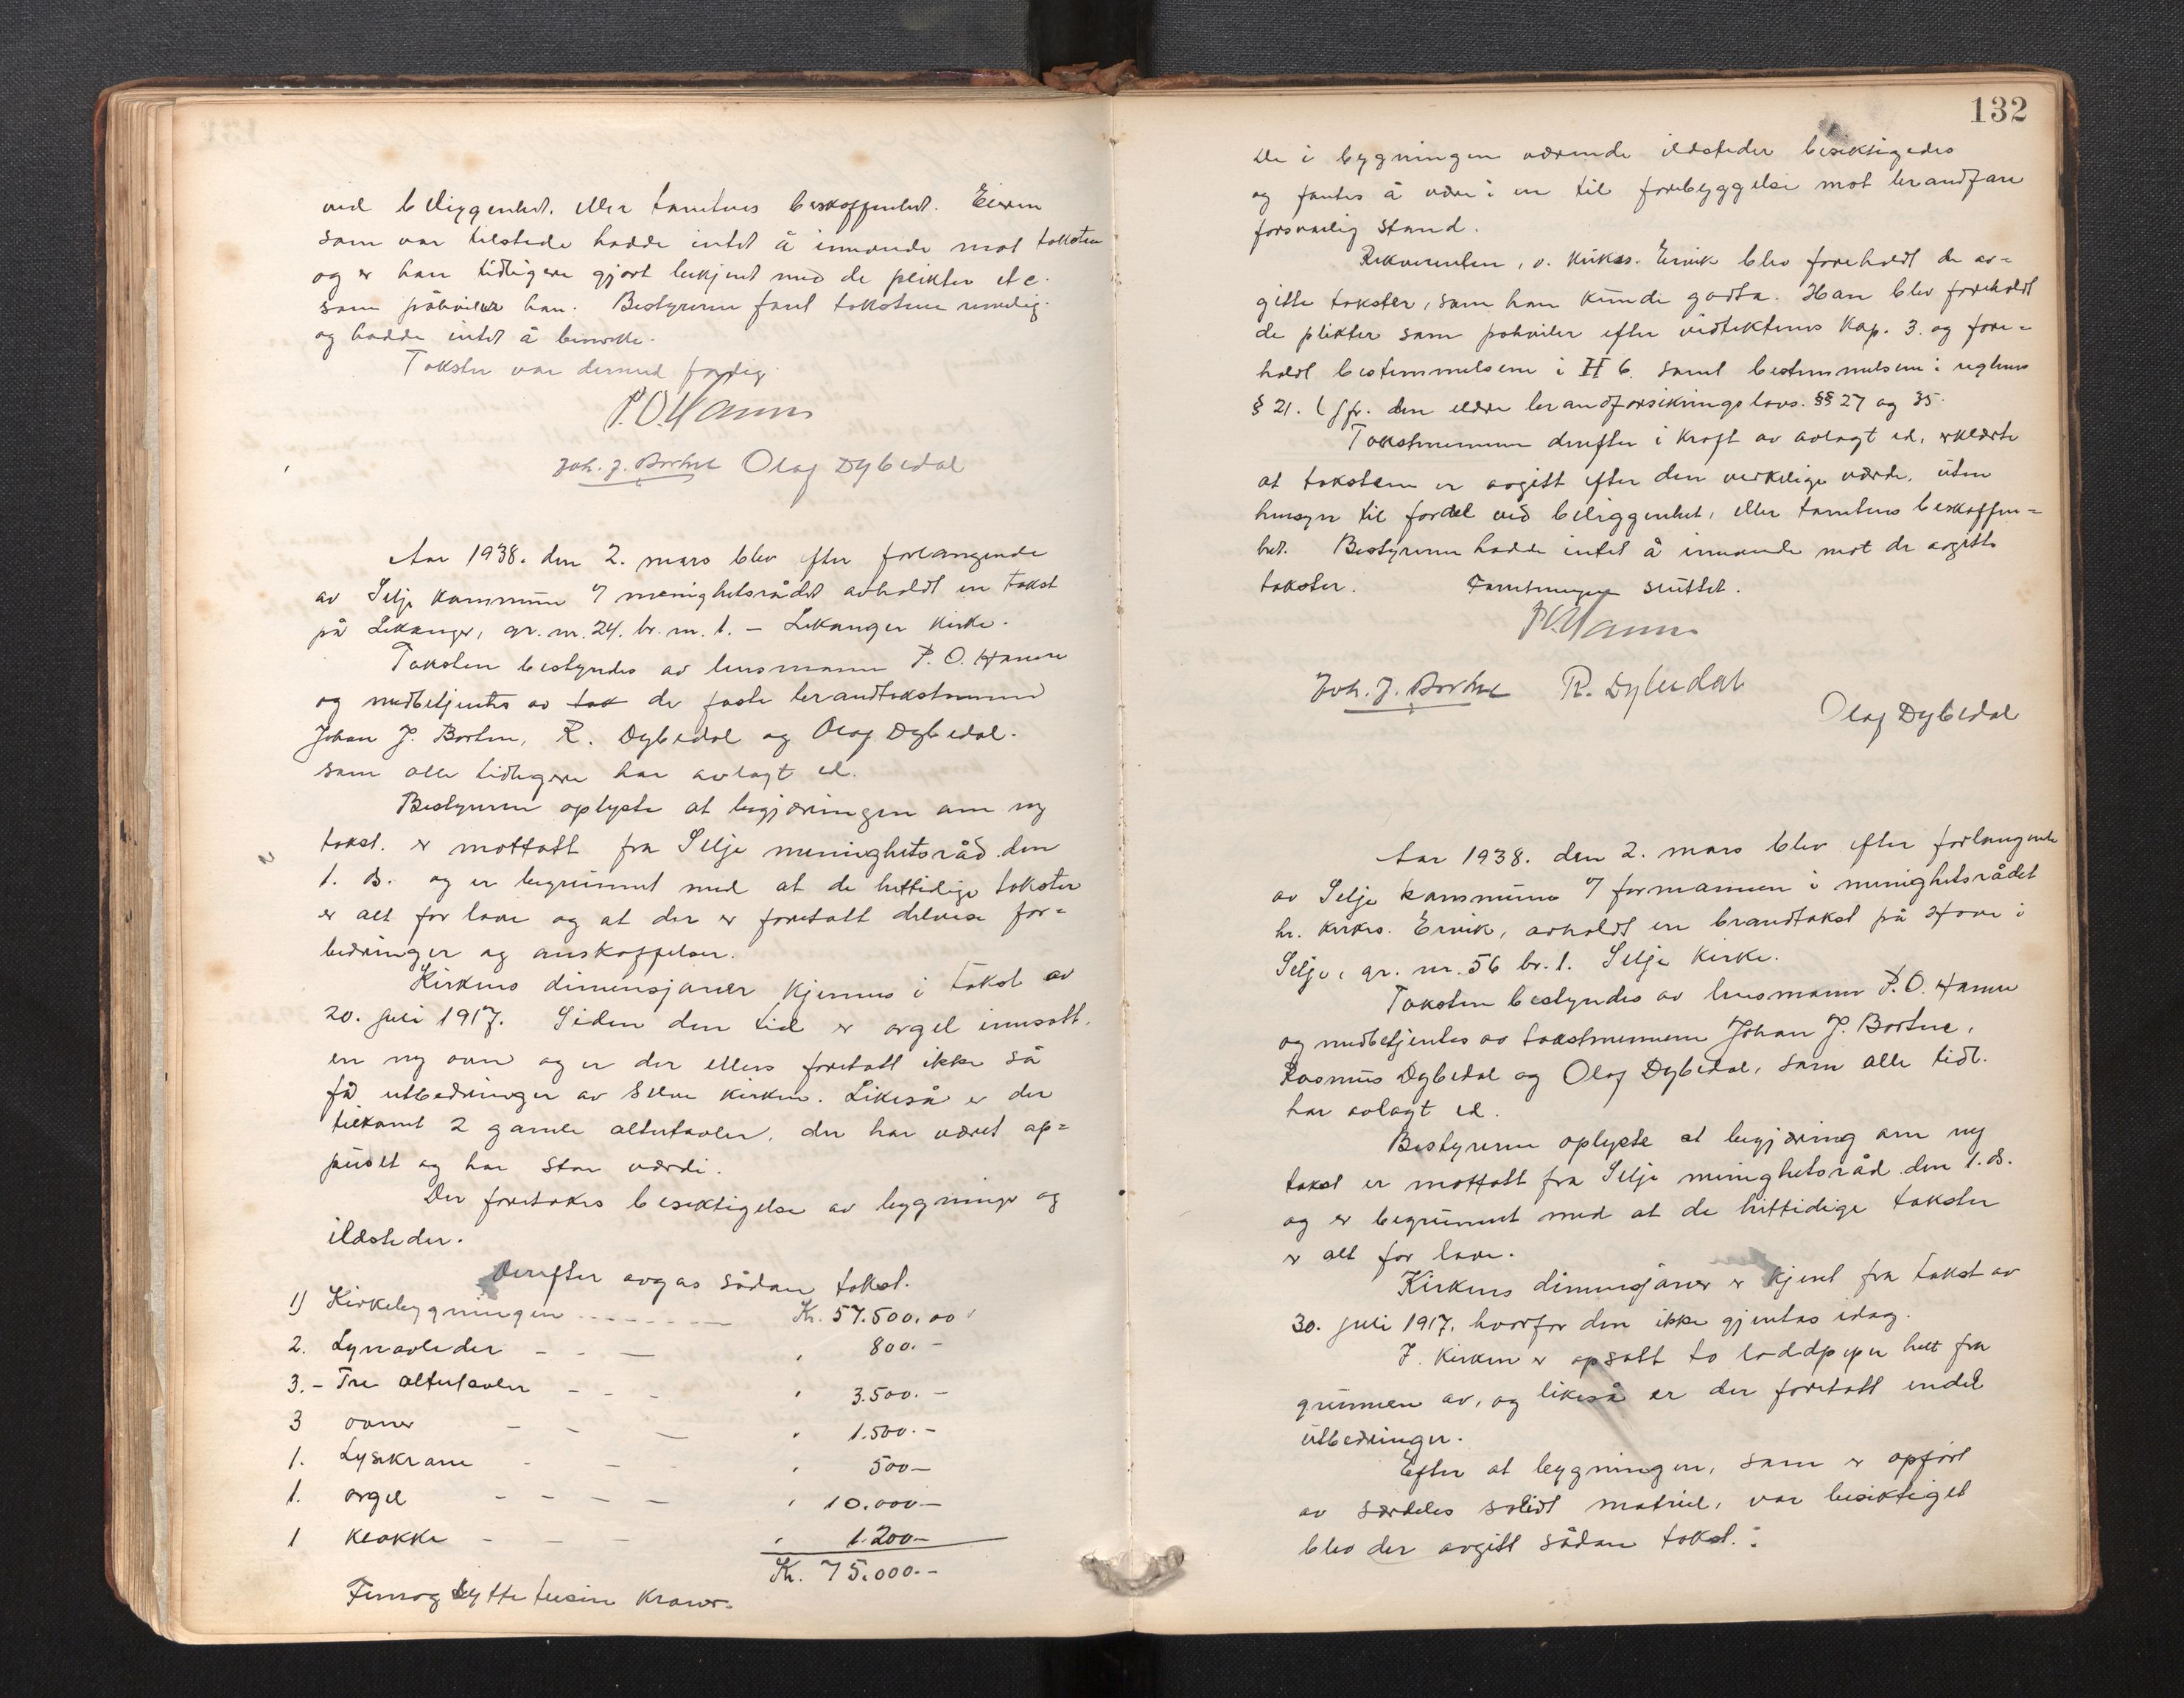 ved beliggenhet. eller tomtens beskaffenhet. Eieren
som var tilstede hadde intet å innvende mot taksten
og er han tidligere gjort bekjent med de plikter etc.
som påhviler han. Bestyreren fant takstene rimelig
og hadde intet å bemerke.
Taksten var dermed ferdig.
P.O. Hamre
Joh. J. Bortne Olaf Dybedal
Aar 1938. den 2. mars blev efter forlangende
av Selje kommune v/ menighetsrådet avholdt en takst
på Leikanger, gr. nr. 24. br. nr. 1. – Leikanger kirke.
Taksten bestyredes av lensmann P. O. Hamre
og medbetjentes av tak de faste brandtakstmenn
Johan J. Bortne, R. Dybedal og Olaf Dybedal.
som alle tidligere har avlagt ed.
Bestyreren oplyste at begjæringen om ny
takst. er mottatt fra Selje menighetsråd den
1. ds. og er begrunnet med at de hittidige takster
er alt for lave og at der er foretatt delvise for=
bedringer og anskaffelser.
Kirkens dimensjoner kjennes i takst av
20. juli 1917. Siden den tid er orgel innsatt.
en ny ovn og er der ellers foretatt ikke så
få utbedringer av selve kirken. Likeså er der
tilkomt 2 gamle altertavler, der har været op=
pusset og har stor værdi.
Der foretokes besiktigelse av bygninge og
ildsteder.
Derefter avgas sådan takst.
1) Kirkebygningen - - - - - Kr. 57.500,00
2. Lynavleder - - — " 800. -
3. - Tre altertavler - - - " 3.500. -
3 ovner - - — " 1.500. -
1. Lysekrone - — - " 500 —
1. orgel - - — — " 10.000 —
1 klokke - — — " 1.200 —
Kr. 75.000. -
Femogsytti tusen kroner.
132
De i bygningen værende ildsteder besiktigedes
og fantes å være i en til forebyggelse mot brandfare
forsvarlig stand.
Rekvirenten, v. kirkes. Ervik blev foreholdt de av=
gitte takster, som han kunde godta. Han blev foreholdt
de plikter som påhviler efter vedtektenes Kap. 3. og fore=
holdt bestemmelsene i H 6. samt bestemmelsene i reglenes
§ 21. (jfr. den eldre brandforsikringslovs. §§ 27 og 35.
Takstmennene derefter i kraft av avlagt ed, erklærte
at takstene er avgitt efter den verkelige værde, uten
hensyn til fordel ved beliggenhet, eller tomtens beskaffen=
het. Bestyreren hadde intet å innvende mot de avgitte
takster. Forretningen sluttet.
P.O. Hamre
Joh. J. Bortne R. Dybedal
Olaf Dybedal
Aar 1938. den 2. mars blev efter forlangende
av Selje kommune v/ formannen i menighetsrådet
hr. kirkes. Ervik, avholdt en brandtakst på Hove i
Selje, gr. nr. 56 br. 1. Selje kirke.
Taksten bestyredes av lensmann P. O. Hamre
og medbetjentes av takstmennene Johan J. Bortne,
Rasmus Dybedal og Olaf Dybedal, som alle tidl.
har avlagt ed.
Bestyreren oplyste at begjæring om ny
takst er mottatt fra Selje menighetsråd den 1. ds.
og er begrunnet med at de hittidige takster
er alt for lave.
Kirkens dimensjoner er kjent fra takst av
30. juli 1917. hvorfor den ikke gjentas idag.
I. Kirken er opsatt to loddpiper helt fra
grunnen av, og likeså er der foretatt endel
utbedringer.
Efter at bygningen, som er opført
av særdeles solidt matriel, var besiktiget
blev der avgitt sådan takst. :